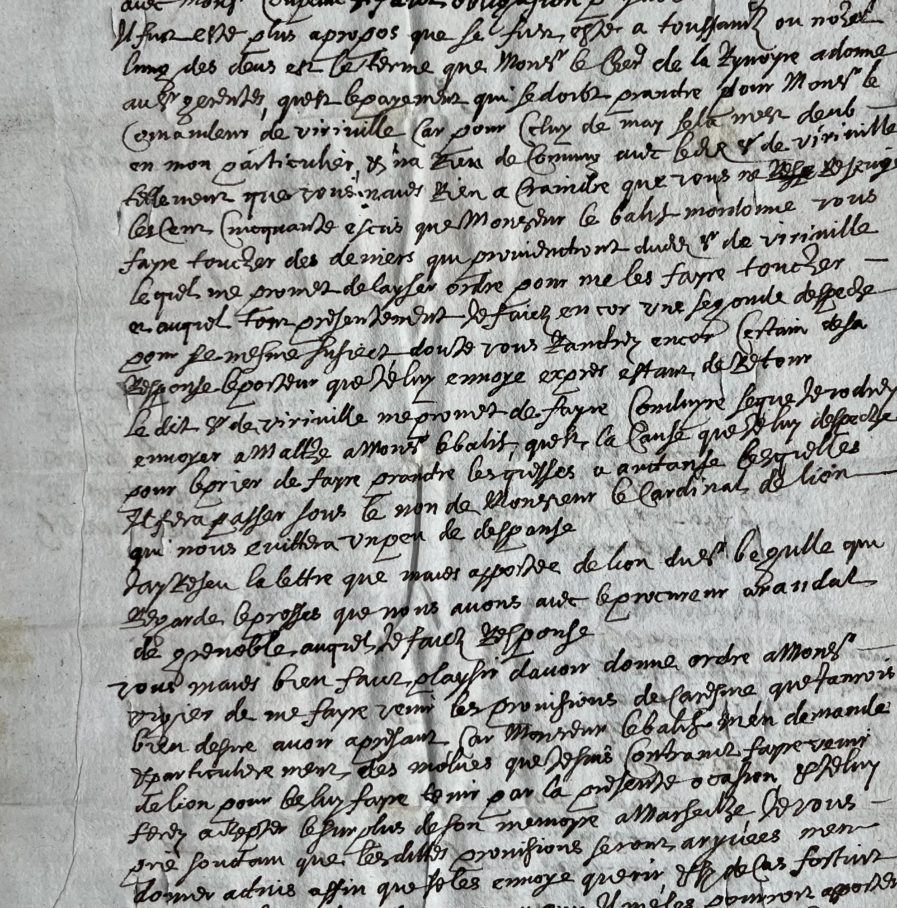 avec mons^r
Il fust esté plus apropos que se fust esté a toussainctz ou noyel
lung des deus est le terme que Mons^r le de la a donné
aus^r quest leparement qui sedoibt prandre pour Mons^r le
Comandeur de viriville Car pour Celluy de may
en mon particulier et na Rien de Comung avec ledit s^r de viriville
tellement que vous naves Rien a Craindre que vous ne
les Cent Cincquante escus que Monsieur le balif mordonne vous
fayre toucher des deniers qui proviendront dudit s^r de viriville
lequel me promet delaysser ordre pour me les fayre toucher
et auquel tout présentement Je faictz encor une segonde despeche
pour se mesme subiect doute vous Randrez encor Certain de sa
Response leporteur que Jeluy envoye expres estant de Retour
le dit s^r de viriville me promet de fayre Conduyre seque Je vodrey
envoyer a Malthe a Mons^r lebalif, quest la Cause que Jeluy despeche
pour leprier de fayre prandre lesquesses a lesquelles
Il fera passer sous le non de Monsieur le Cardinal de lion
qui nous evittera unpeu de desponse
Jay Reseu la lettre que maves apportée de lion dus^r begulle qui
Regarde leprosses que nous avons avec leprocureur
de grenoble auquel Je faictz Response
vous maves bien faict playsir davoir donné ordre a Mons^r
de me fayre venir les provisions de Caresme que Jauroys
bien desiré avoir apresant Car Monsieur lebalif men demande
et particulierement des molues que Jesuis Contrainct fayre venir
delion pour leluy fayre tenir par la présente ocasion et Jeluy
ferey achepter lesurplus de son memoyre a Marseilhe Je vous
prie soudain que lesdittes provisions seront arryvées men
donner advis affin que Je les envoye querir de Cas fortuit
Il me les pourroit apporter